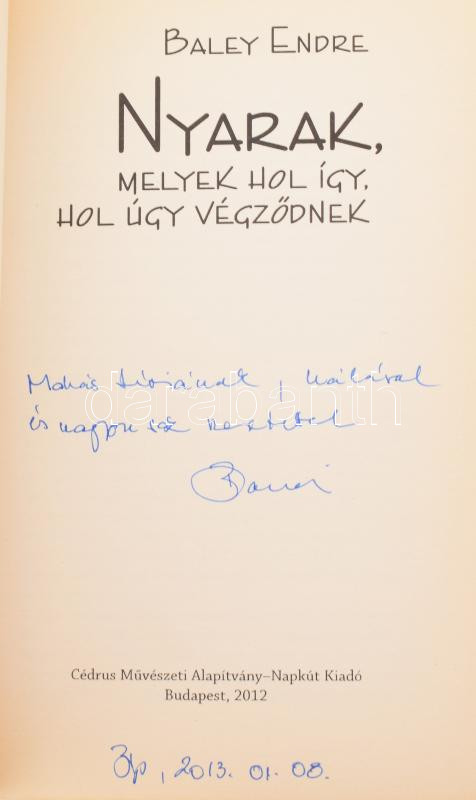 BALEY ENDRE
NYARAK,
MELYEK HOL ÍGY,
HOL ÚGY VÉGZŐDNEK
hálával
darabanth
és nagyon sok szeretettel
Cédrus Művészeti Alapítvány–Napkút Kiadó
Budapest, 2012
Bp, 2013. 01. 08.